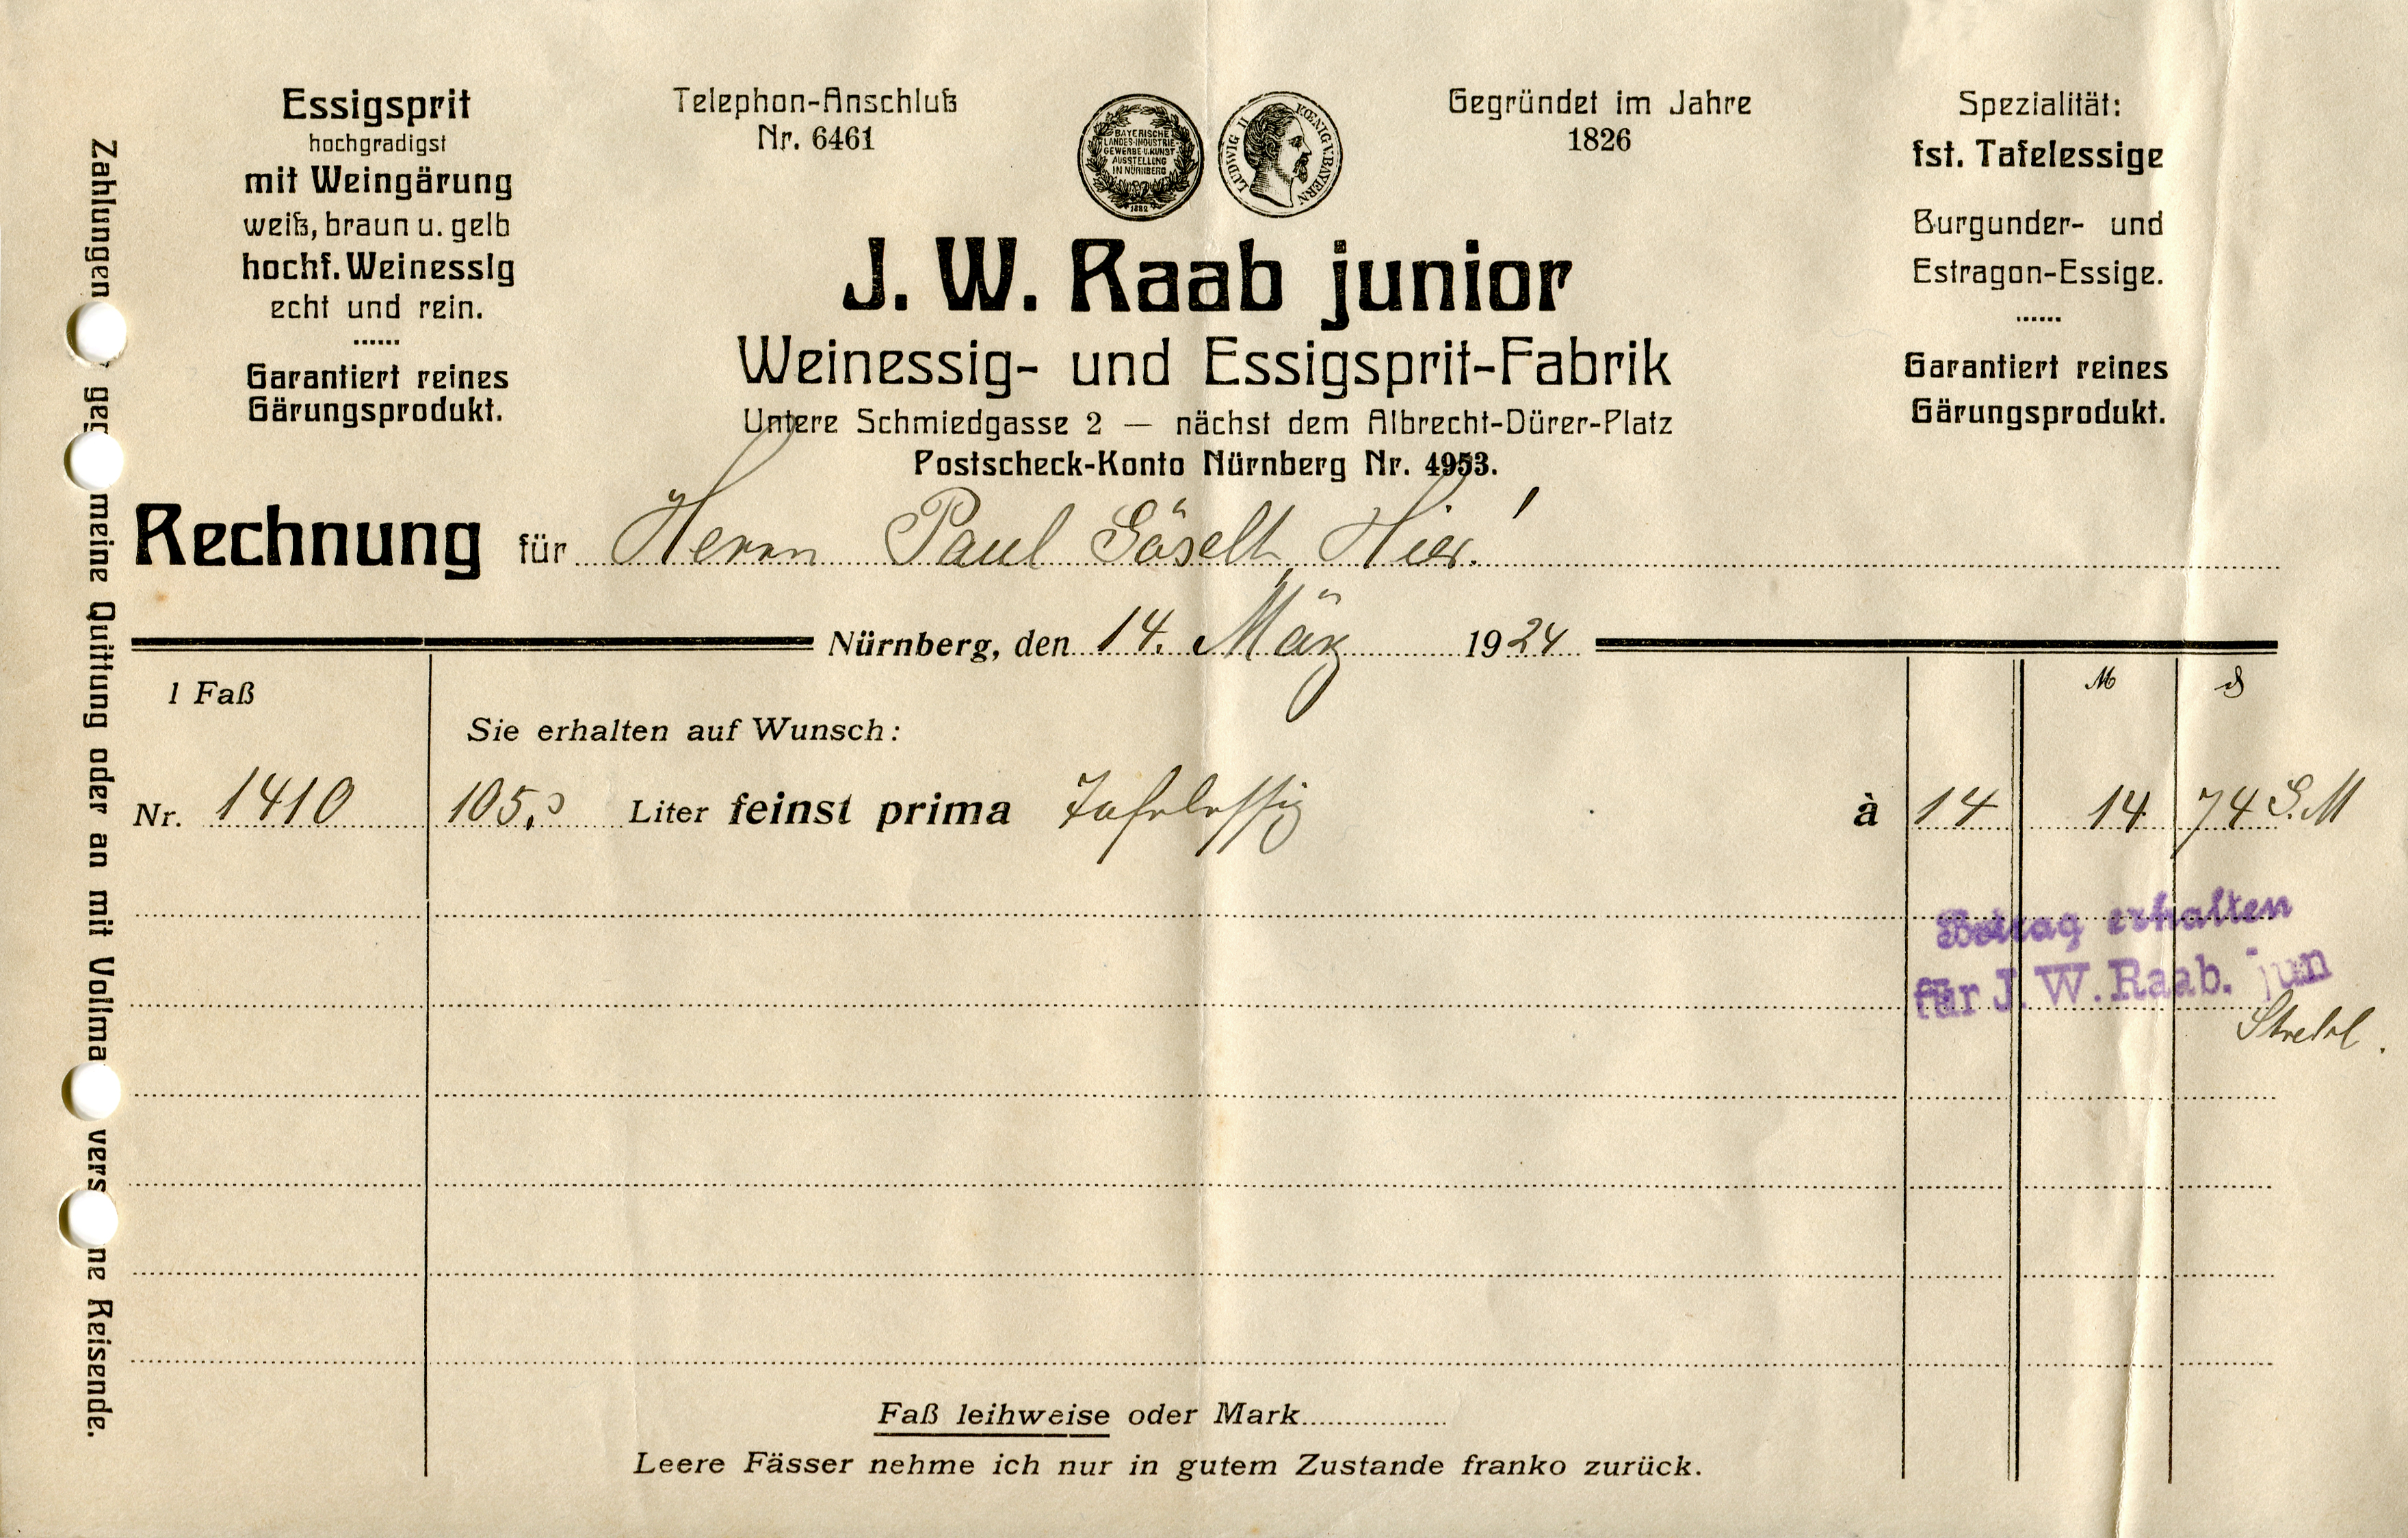 Zahlungen geg meine Quittung oder an mit Vollma vers ne Reisende.
Essigsprit
hochgradigst
mit Weingärung
weiß, braun u. gelb
hochf. Weinessig
echt und rein.
Garantiert reines
Gärungsprodukt.
Telephon-Anschluß
Nr. 6461
BAYERISCHE
LANDES-INDUSTRIE
GEWERBE U. KUNST
AUSSTELLUNG
IN NÜRNBERG
1882
LUDWIG II KOENIG V. BAYERN
Gegründet im Jahre
1826
Spezialität:
fst. Tafelessige
Burgunder- und
Estragon-Essige.
Garantiert reines
Gärungsprodukt.
J. W. Raab junior
Weinessig- und Essigsprit-Fabrik
Untere Schmiedgasse 2 — nächst dem Albrecht-Dürer-Platz
Postscheck-Konto Nürnberg Nr. 4953.
Rechnung für Herrn Paul Göselt, Hier!
Nürnberg, den 14. März 1924
1 Faß
M ₰
Sie erhalten auf Wunsch:
Nr. 1410 105,0 Liter feinst prima Tafelessig à 14 14 74 G.M
Betrag erhalten
für J. W. Raab. jun
Faß leihweise oder Mark
Leere Fässer nehme ich nur in gutem Zustande franko zurück.